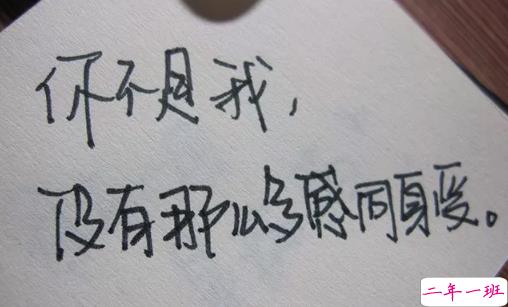 你不是我，
没有那么多感同身受。
二年一班